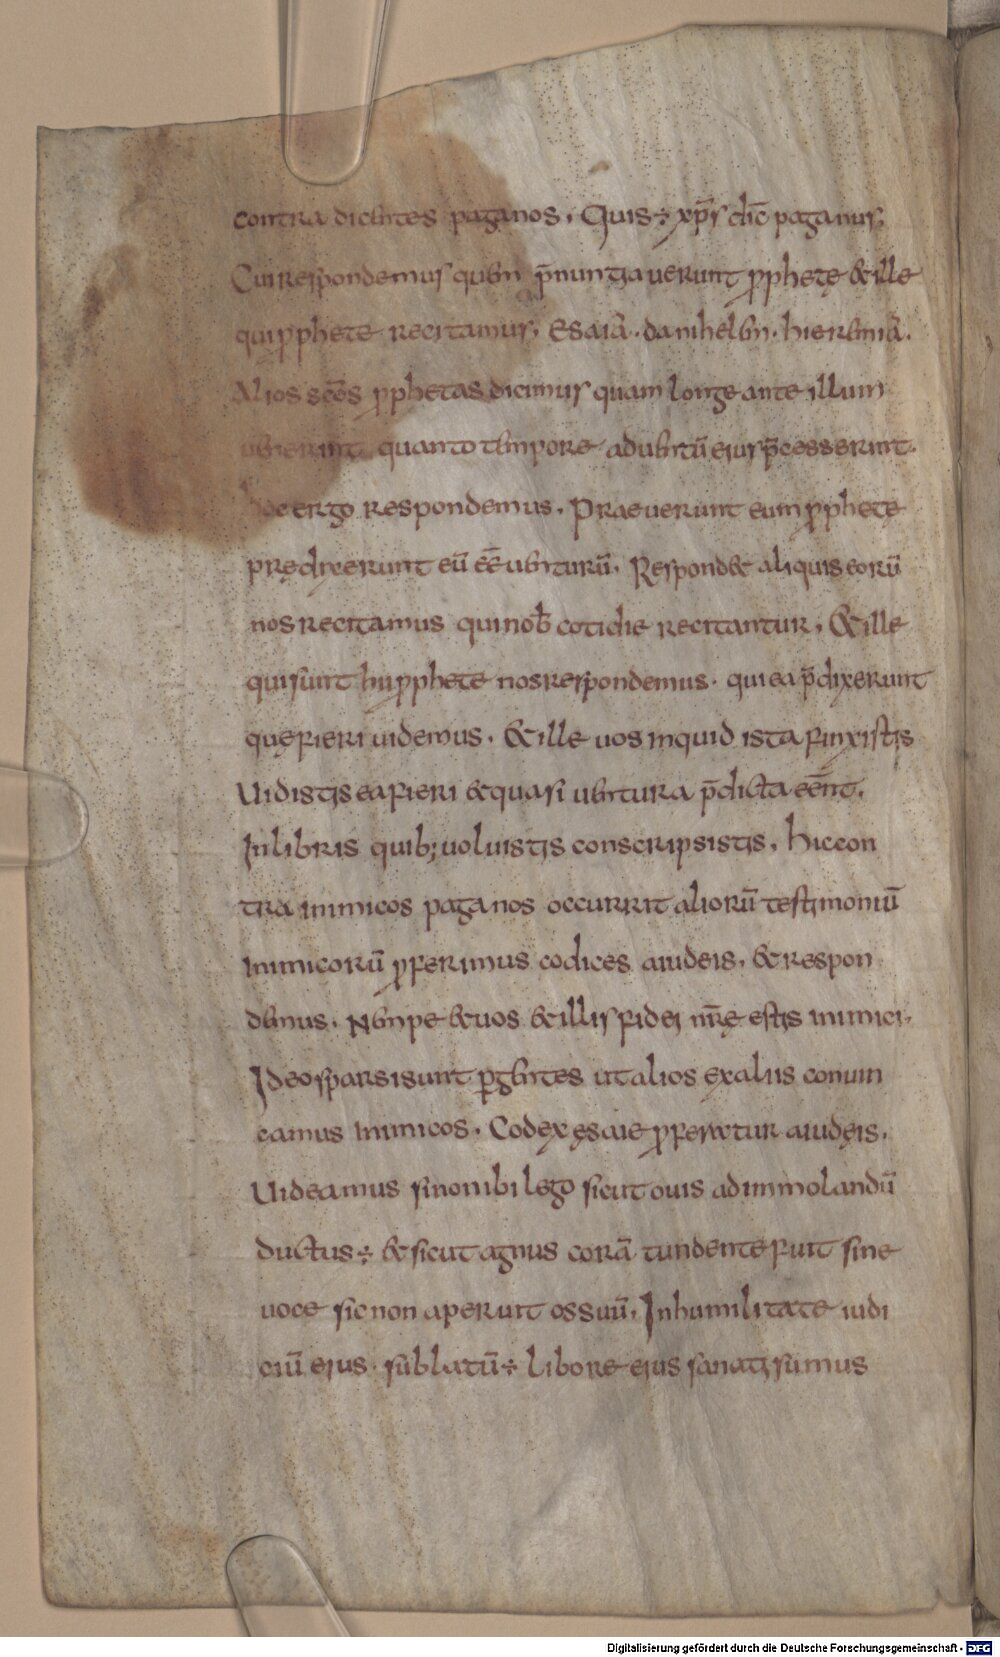 contra dicentes paganos. Quis ÷ xp̄s dic̄ paganus;
Cui respondemus quem p̄nuntiauerunt ꝓphetę & ille
qui ꝓphete recitamus. Esaiā. danihelem. hieremiā.
Alios sc̄os ꝓphetas dicimus quam longe ante illum
uenerunt quanto tempore aduentū eius p̄cesserunt.
hoc ergo respondemus. Praeuerunt eum ꝓphetę
prędixerunt eū ēē uenturū. Respond& aliquis eorū
nos recitamus qui nob̄ cotidie recitantur. & ille
qui sunt hii ꝓphete nos respondemus. qui ea p̄dixerunt
quę fieri uidemus. & ille uos inquid ista finxistis
Uidistis ea fieri & quasi uentura p̄dicta eēnt.
In libris quib; uoluistis conscripsistis. hic con
tra inimicos paganos occurrit aliorū testimoniū
inimicorū ꝓferimus codices a iudeis. & respon
demus. Nempe & uos & illis fidei nr̄ę estis inimici.
Ideo sparsi sunt ꝑ gentes ut alios ex aliis conuin
camus inimicos. Codex ęsaie ꝓferatur a iudęis.
Uideamus si non ibi lego sicut ouis ad immolandū
ductus ÷ & sicut agnus corā tundente fuit sine
uoce sic non aperuit os suū. In humilitate iudi
ciū eius sublatū ÷ libore eius sanati sumus
Digitalisierung gefördert durch die Deutsche Forschungsgemeinschaft - DFG